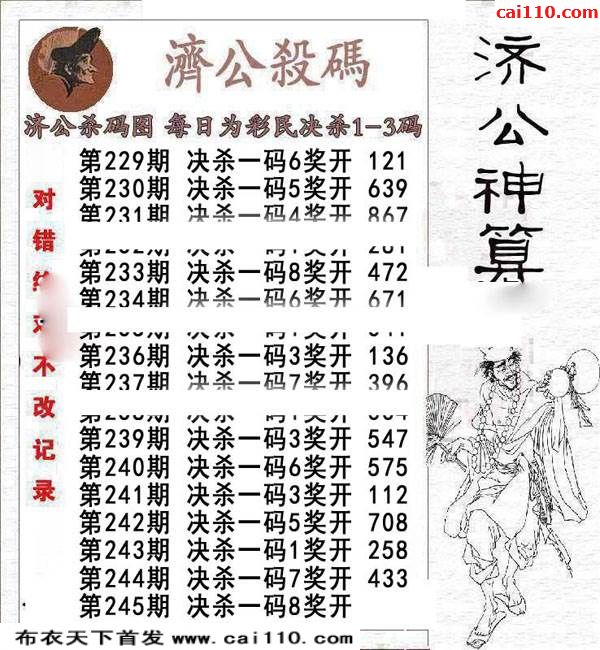 cai110.com
濟公殺碼
济公神算
济公杀码图 每日为彩民决杀1-3码
对错 不改记录
第229期 决杀一码6奖开 121
第230期 决杀一码5奖开 639
第231期 决杀一码4奖开 867
第233期 决杀一码8奖开 472
第234期 决杀一码6奖开 671
第236期 决杀一码3奖开 136
第237期 决杀一码7奖开 396
第239期 决杀一码3奖开 547
第240期 决杀一码6奖开 575
第241期 决杀一码3奖开 112
第242期 决杀一码5奖开 708
第243期 决杀一码1奖开 258
第244期 决杀一码7奖开 433
第245期 决杀一码8奖开
布衣天下首发 www.cai110.com